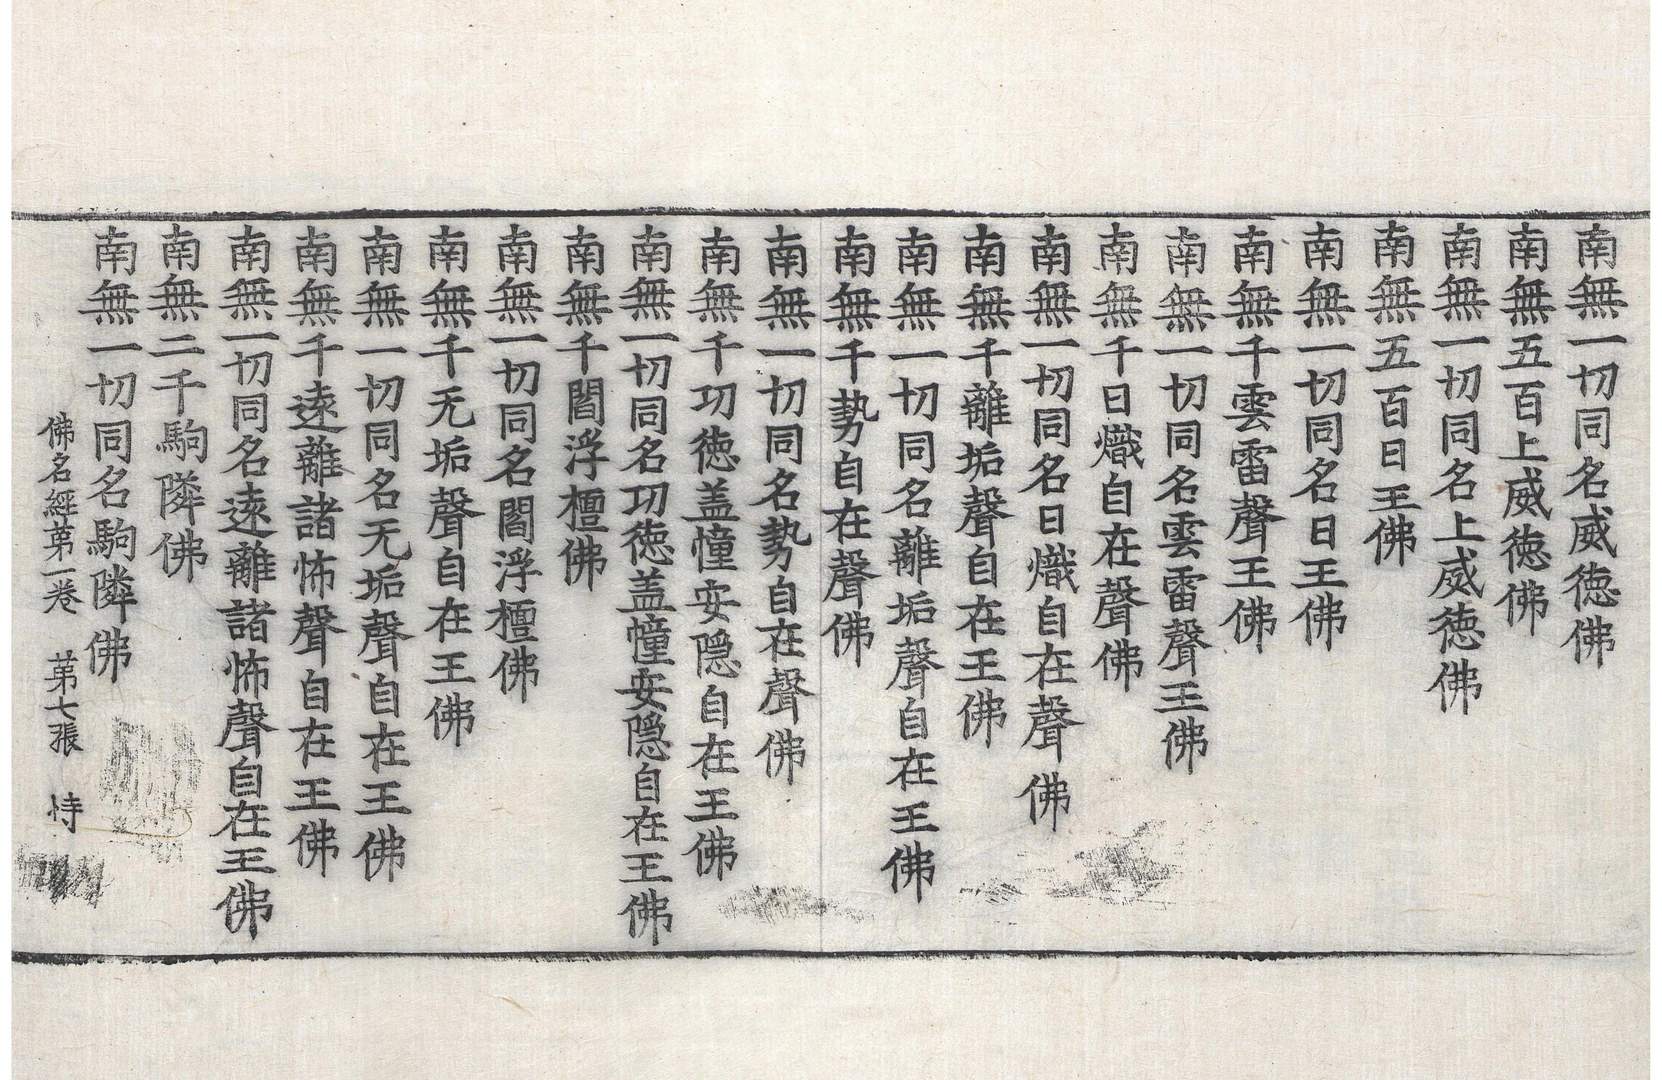 南無一切同名威德佛
南無五百上威徳佛
南無一切同名上威徳佛
南無五百日王佛
南無一切同名日王佛
南無千雲雷聲王佛
南無一切同名雲雷聲王佛
南無千日熾自在聲佛
南無一切同名日熾自在聲佛
南無千離垢聲自在王佛
南無一切同名離垢聲自在王佛
南無千勢自在聲佛
南無一切同名勢自在聲佛
南無千功徳盖幢安隠自在王佛
南無一切同名功徳盖幢安隠自在王佛
南無千閻浮檀佛
南無一切同名閻浮檀佛
南無千无垢聲自在王佛
南無一切同名无垢聲自在王佛
南無千遠離諸怖聲自在王佛
南無一切同名遠離諸怖聲自在王佛
南無二千駒隣佛
南無一切同名駒隣佛
佛名經第一卷 第七張 恃